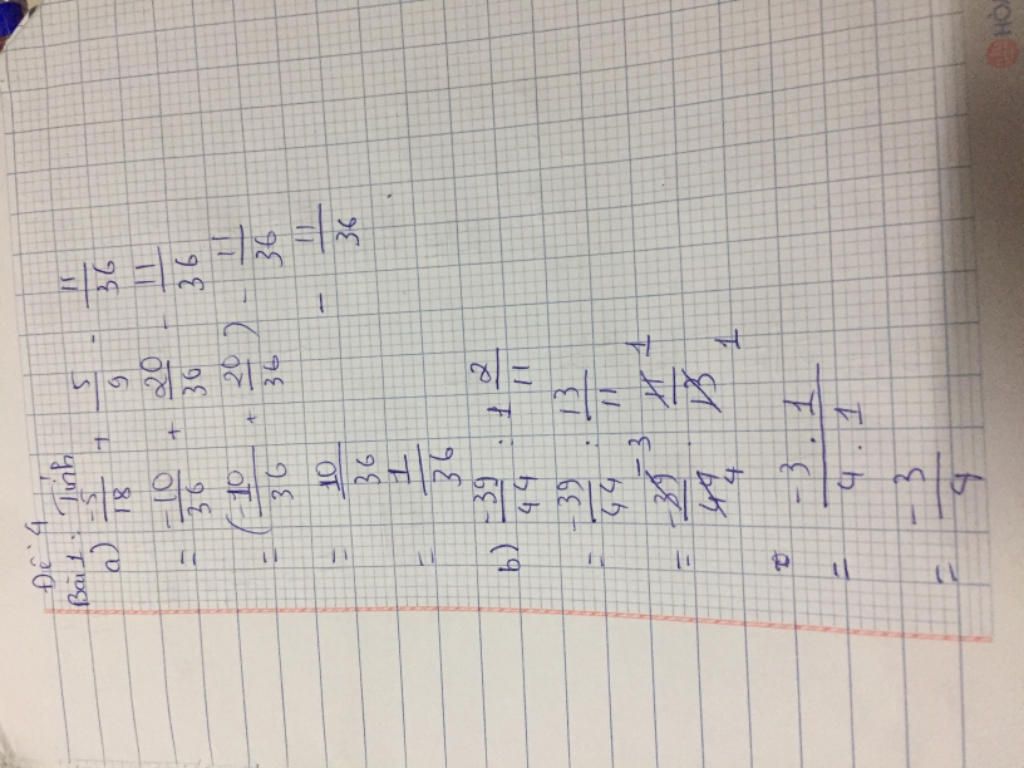 Đề 4
Bài 1: Tính
a) -5/18 + 5/9 - 11/36
= -10/36 + 20/36 - 11/36
= (-10/36 + 20/36) - 11/36
= 10/36 - 11/36
= 1/36
b) -39/44 : 1 2/11
= -39/44 : 13/11
= -39/44 . 11/13 -3 1 4 1
= -3 . 1/4 . 1
= -3/4